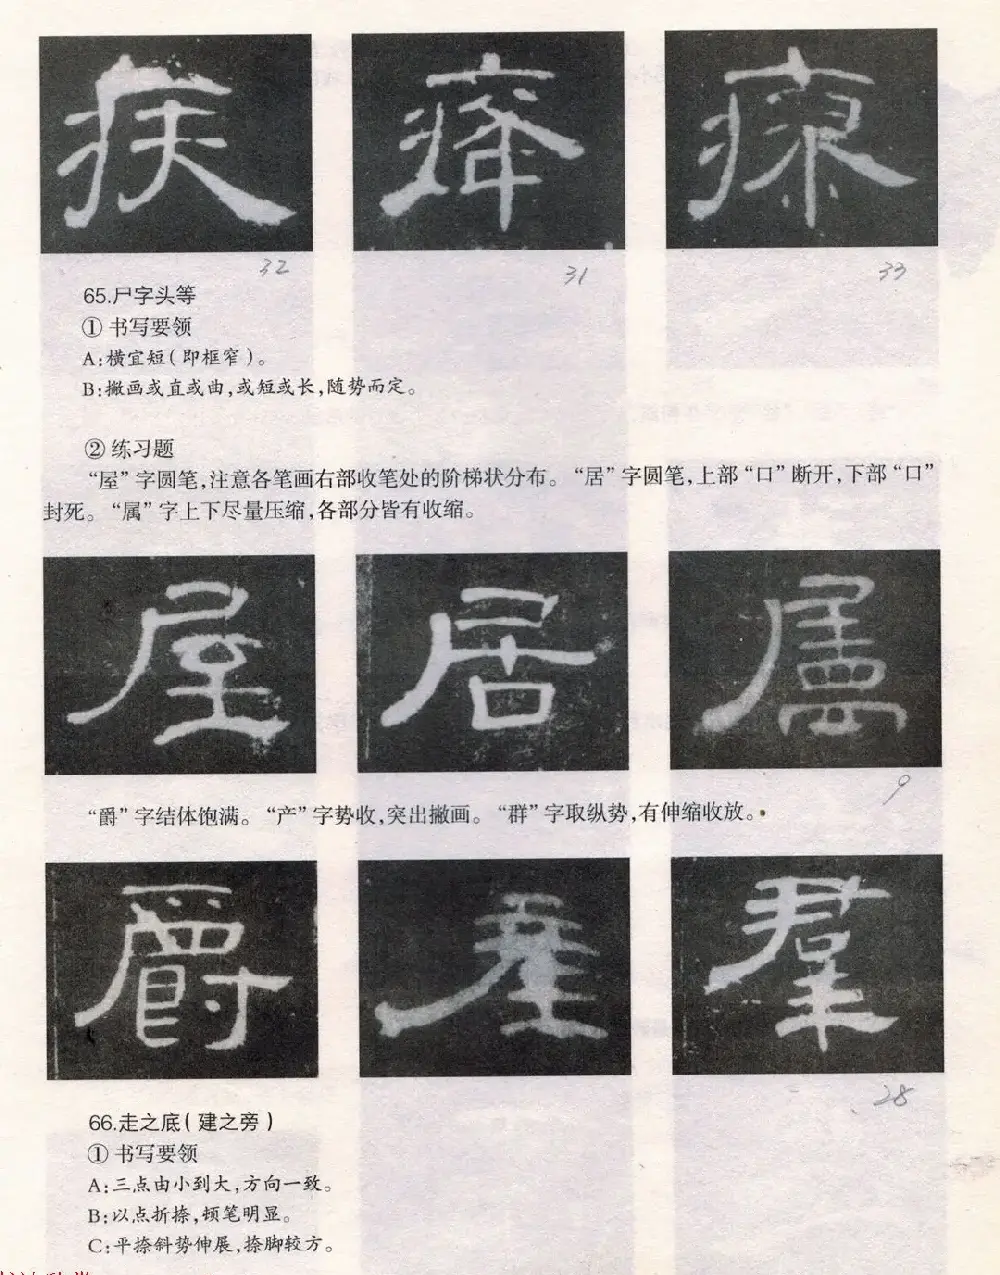 疾 瘴 瘵
32 31 33
65.尸字头等
① 书写要领
A:横宜短(即框窄)。
B:撇画或直或曲,或短或长,随势而定。
② 练习题
“屋”字圆笔,注意各笔画右部收笔处的阶梯状分布。“居”字圆笔,上部“口”断开,下部“口”
封死。“属”字上下尽量压缩,各部分皆有收缩。
屋 居
9
“爵”字结体饱满。“产”字势收,突出撇画。“群”字取纵势,有伸缩收放。
爵 產 羣
28
66.走之底(建之旁)
① 书写要领
A:三点由小到大,方向一致。
B:以点折捺,顿笔明显。
C:平捺斜势伸展,捺脚较方。